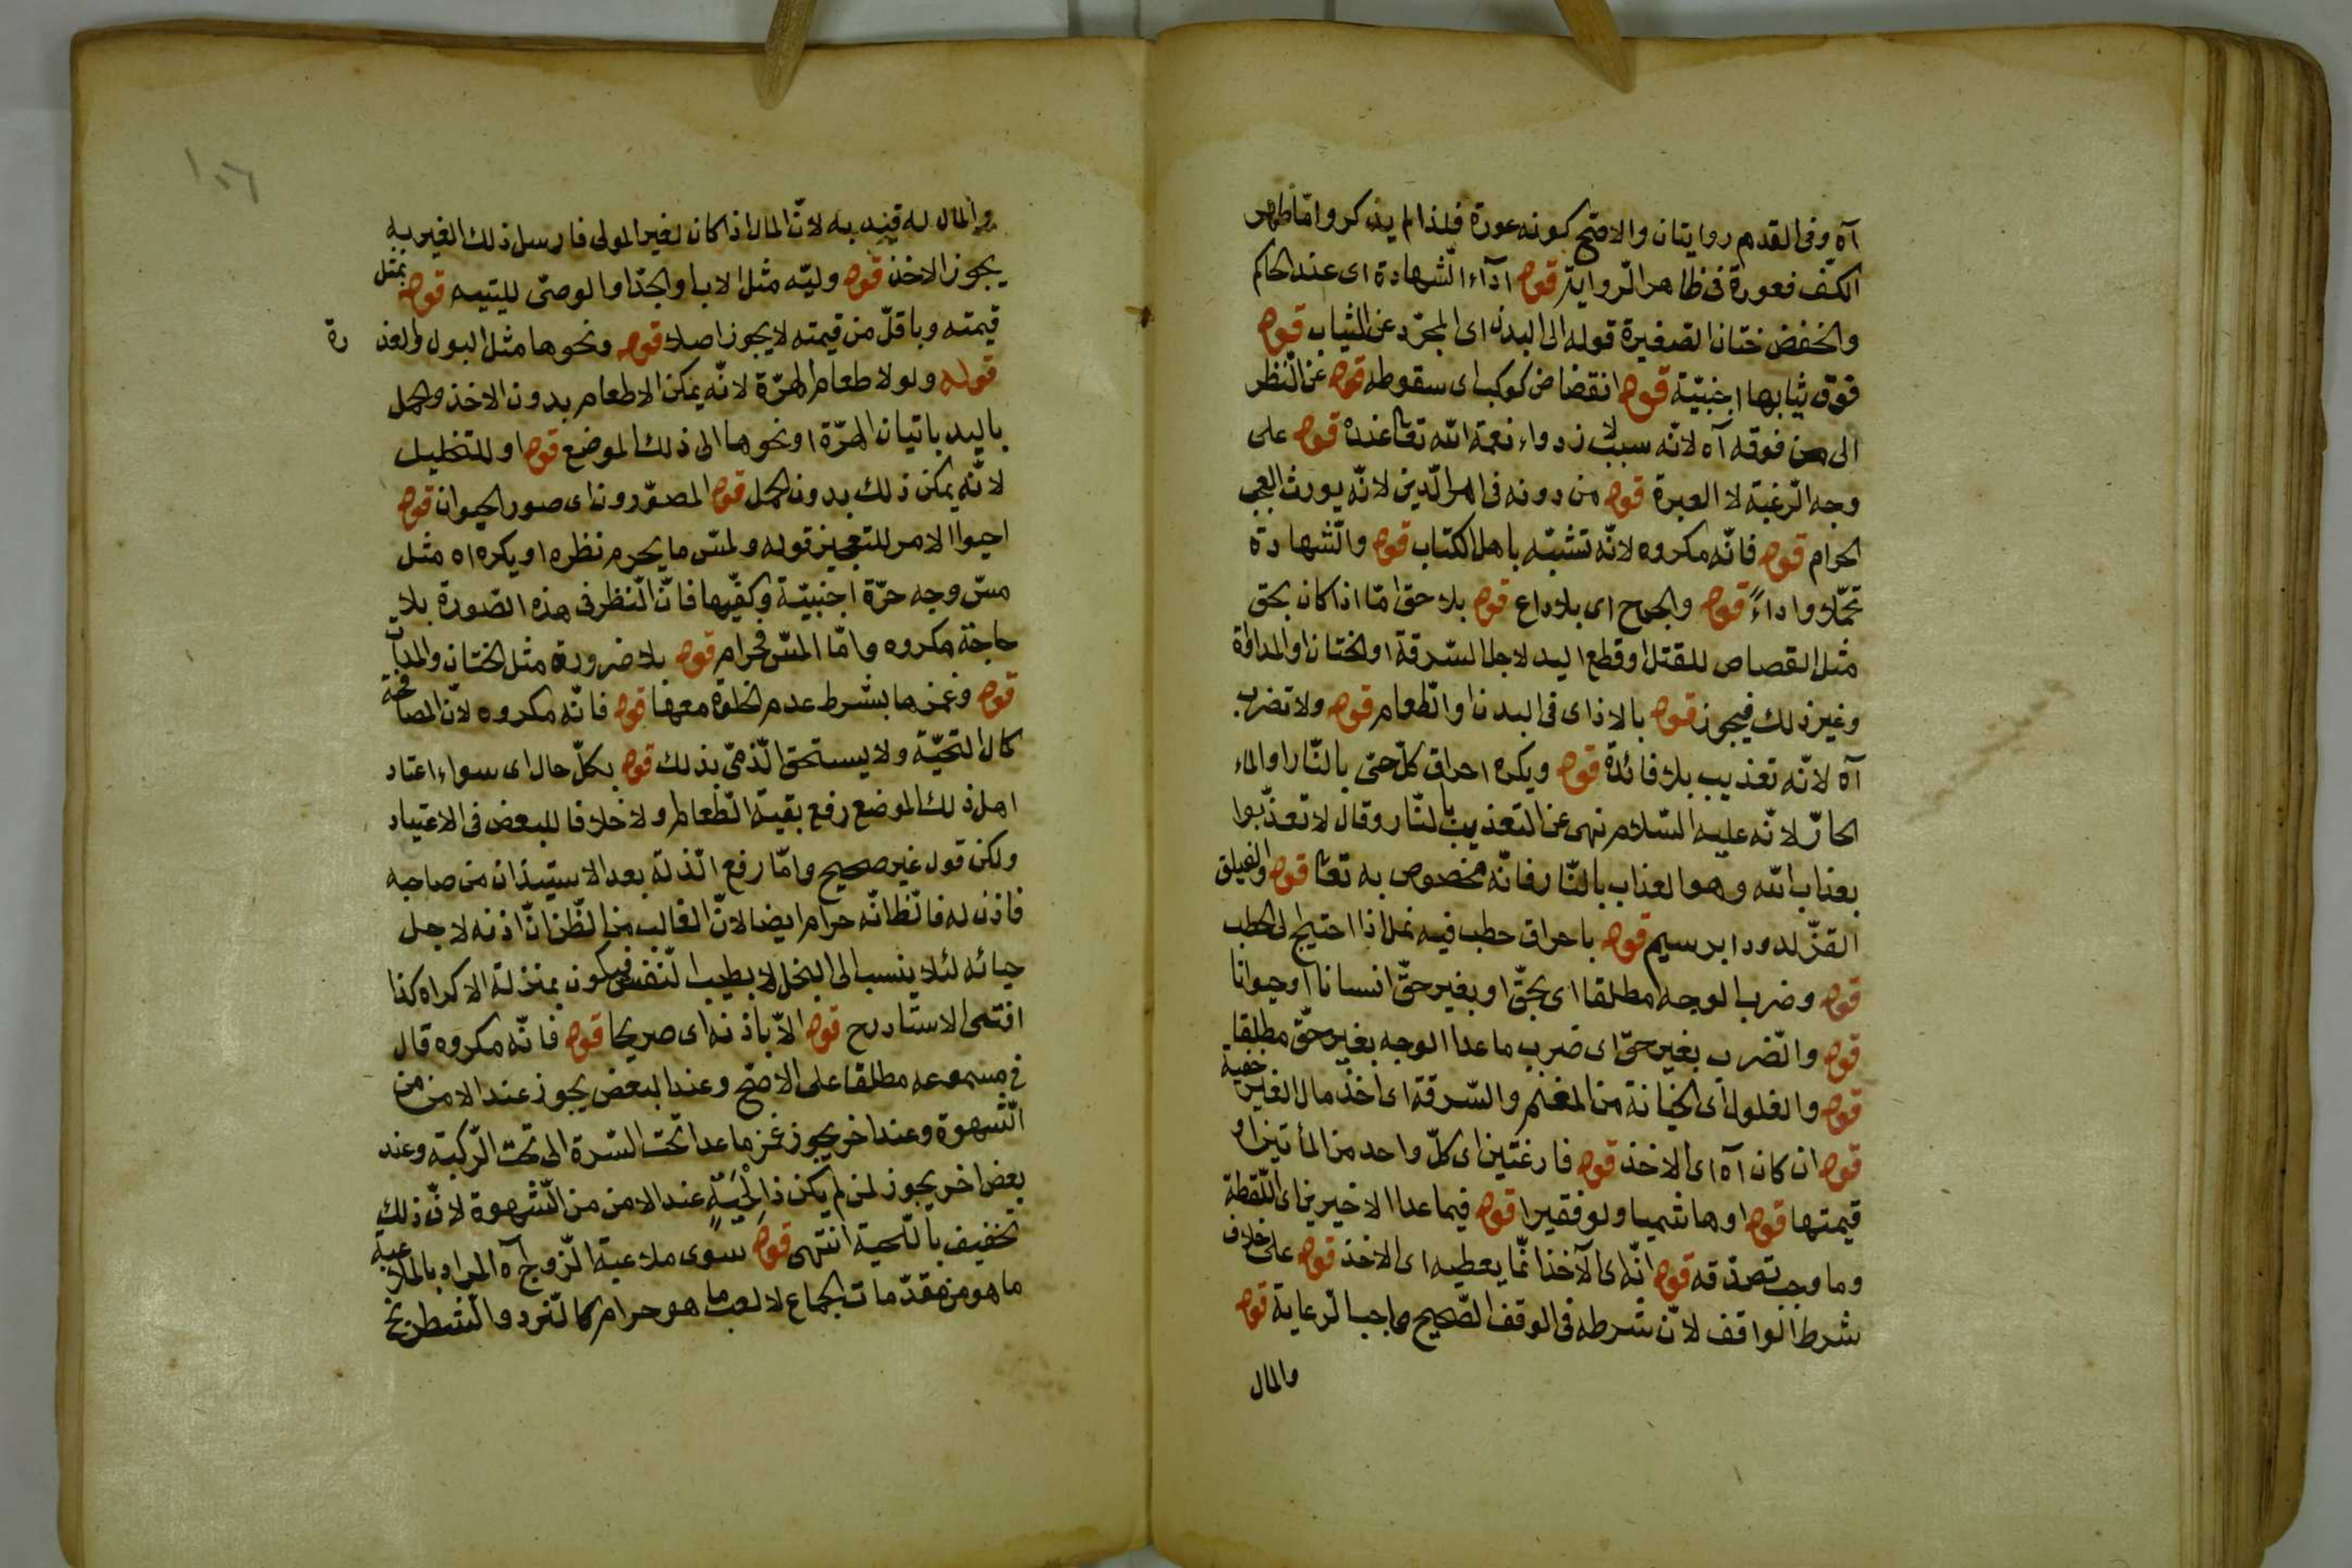 آه وفى القدم روايتان والاصّح كونه عورة فلذا لم يذكر وامّا ظهر
الكفّ فعورة فى ظاهر الرّواية قوله ادآء الشّهادة اى عند الحاكم
والخفض ختان الصّغيرة قوله الى البدن اى المجرّد عن الثياب قوله
فوق ثيابها اجنبيّة قوله انقضاض كوكب اى سقوطه قوله عن النّظر
الى من فوقه آه لانّه سبب لازدراء نعمة الله تعا عنده قوله على
وجه الرّغبة لا العبرة قوله من دونه فى امر الدّين لانّه يورث العجب
الحرام قوله فانّه مكروه لانّه تشبّه باهل الكتاب قوله والشّهادة
تحمّلا واداءً قوله والجرح اى بلا داع قوله بلا حق امّا اذا كان بحق
مثل القصاص للقتل او قطع اليد لاجل السّرقة او الختان او المداواة
وغير ذلك فيجوز قوله بالاذا اى فى البدن او الطّعام قوله ولا تضرب
آه لانّه تعذيب بلا فائدة قوله ويكره احراق كلّ حىّ بالنّار او الماء
الحارّ لانّه عليه السّلام نهى عن التعذيب بالنّار وقال لا تعذّبوا
بعذاب الله وهو العذاب بالنّار فانّه مخصوص به تعا قوله والفيلق
القزّ لدود ابرسيم قوله باحراق حطب فيه نمل اذا احتيج الى الحطب
قوله وضرب الوجه مطلقا اى بحقّ او بغير حقّ انسانا او حيوانا
قوله والضّرب بغير حقّ اى ضرب ما عدا الوجه بغير حقّ مطلقا
قوله والغلول اى الخيانة من المغنم والسّرقة اى اخذ مال الغير خفية
قوله ان كان آه اى الاخذ قوله فارغتين اى كلّ واحد من المأتين او
قيمتها قوله او هاشميا ولو فقيرا قوله فيما عدا الاخيرين اى اللّقطة
وما وجب تصدّقه قوله انّه اى الآخذ انّما يعطيه اى الاخذ قوله على خلاف
شرط الواقف لانّ شرطه فى الوقف الصّحيح واجب الرّعاية قوله
والمال
والمال له قيّد به لانّ المال اذا كان لغير المولى فارسل ذلك الغير به
يجوز الاخذ قوله وليّه مثل الاب او الجدّ او الوصىّ لليتيم قوله بمثل
قيمته وباقلّ من قيمته لا يجوز اصلا قوله ونحوها مثل البول والعذرة
قوله ولو لاطعام الهرّة لانّه يمكن الاطعام بدون الاخذ والحمل
باليد باتيان الهرّة او نحوها الى ذلك الموضع قوله او للتخليل
لانّه يمكن ذلك بدون الحمل قوله المصوّرون اى صور الحيوان قوله
احيوا الامر للتعجيز قوله ولمسّ ما يحرم نظره او يكره آه مثل
مسّ وجه حرّة اجنبيّة وكفّيها فانّ النّظر فى هذه الصّورة بلا
حاجة مكروه وامّا المسّ فحرام قوله بلا ضرورة مثل الختان والمداواة
قوله وغمزها بشرط عدم الخلوة معها قوله فانّه مكروه لانّ المصافحة
كمال التحيّة ولا يستحق الذّمىّ بذلك قوله بكلّ حال اى سواء اعتاد
اهل ذلك الموضع رفع بقيّة الطّعام او لا خلافا للبعض فى الاعتياد
ولكن قول غير صحيح وامّا رفع الذّلة بعد الاستيذان من صاحبه
فاذن له فالظّ انّه حرام ايضا لانّ الغالب من الظّن انّ اذنه لاجل
حيائه لئلا ينسب الى البخل لا بطيب النّفس فيكون بمنزلة الاكراه كذا
افتى الاستاد رح قوله الاّ باذنه اى صريحا قوله فانّه مكروه قال
فى مسموعه مطلقا على الاصّح وعند البعض يجوز عند الامن من
الشّهوة وعند اخر يجوز غمز ما عدا تحت السّرة الى تحت الرّكبة وعند
بعض اخر يجوز لمن لم يكن ذا لِحْيَةٍ عند الامن من الشّهوة لانّ ذلك
تخفيف باللّحية انتهى قوله سوى ملاعبة الزّوج آه المراد بالملاعبة
ما هو من مقدّمات الجماع لا لعب ما هو حرام كالنّرد والشّطرنج
١٠٦